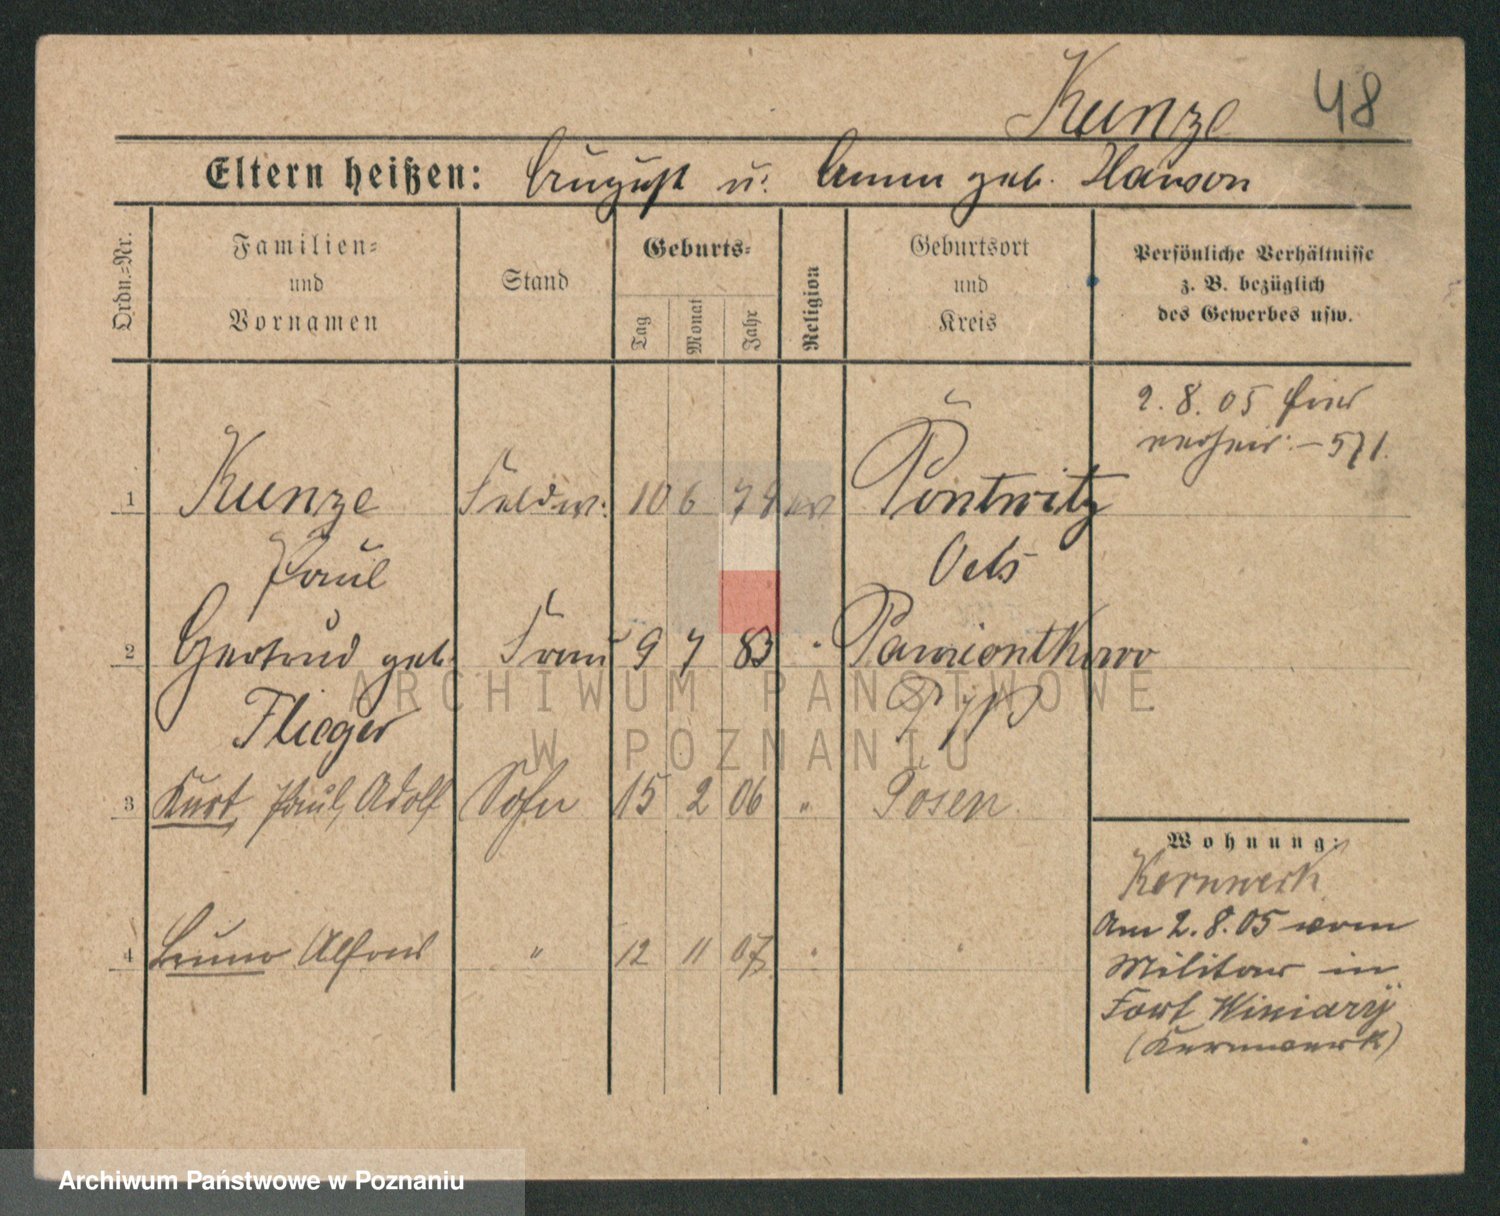 Kunze 48
Eltern heißen: August u. Anna geb. Hanson
Ordn.-Nr.
Familien-
und
Vornamen
Stand
Geburts-
Tag
Monat
Jahr
Religion
Geburtsort
und
Kreis
Persönliche Verhältnisse
z. B. bezüglich
des Gewerbes usw.
2. 8. 05 hier
verheir. – 571.
1 Kunze Feldw. 10 6 79 ev Pontwitz
Paul Oels
2 Gertrud geb. Frau 9 7 83 " Pawiontkowo
Flieger
3 Kurt, Paul, Adolf Sohn 15 2 06 " Posen
4 Bruno Alfred " 12 11 07 " "
Wohnung:
Kernwerk
Am 2. 8. 05 vom
Militär in
Fort Winiary
(Kernwerk)
ARCHIWUM PAŃSTWOWE
W POZNANIU
Archiwum Państwowe w Poznaniu